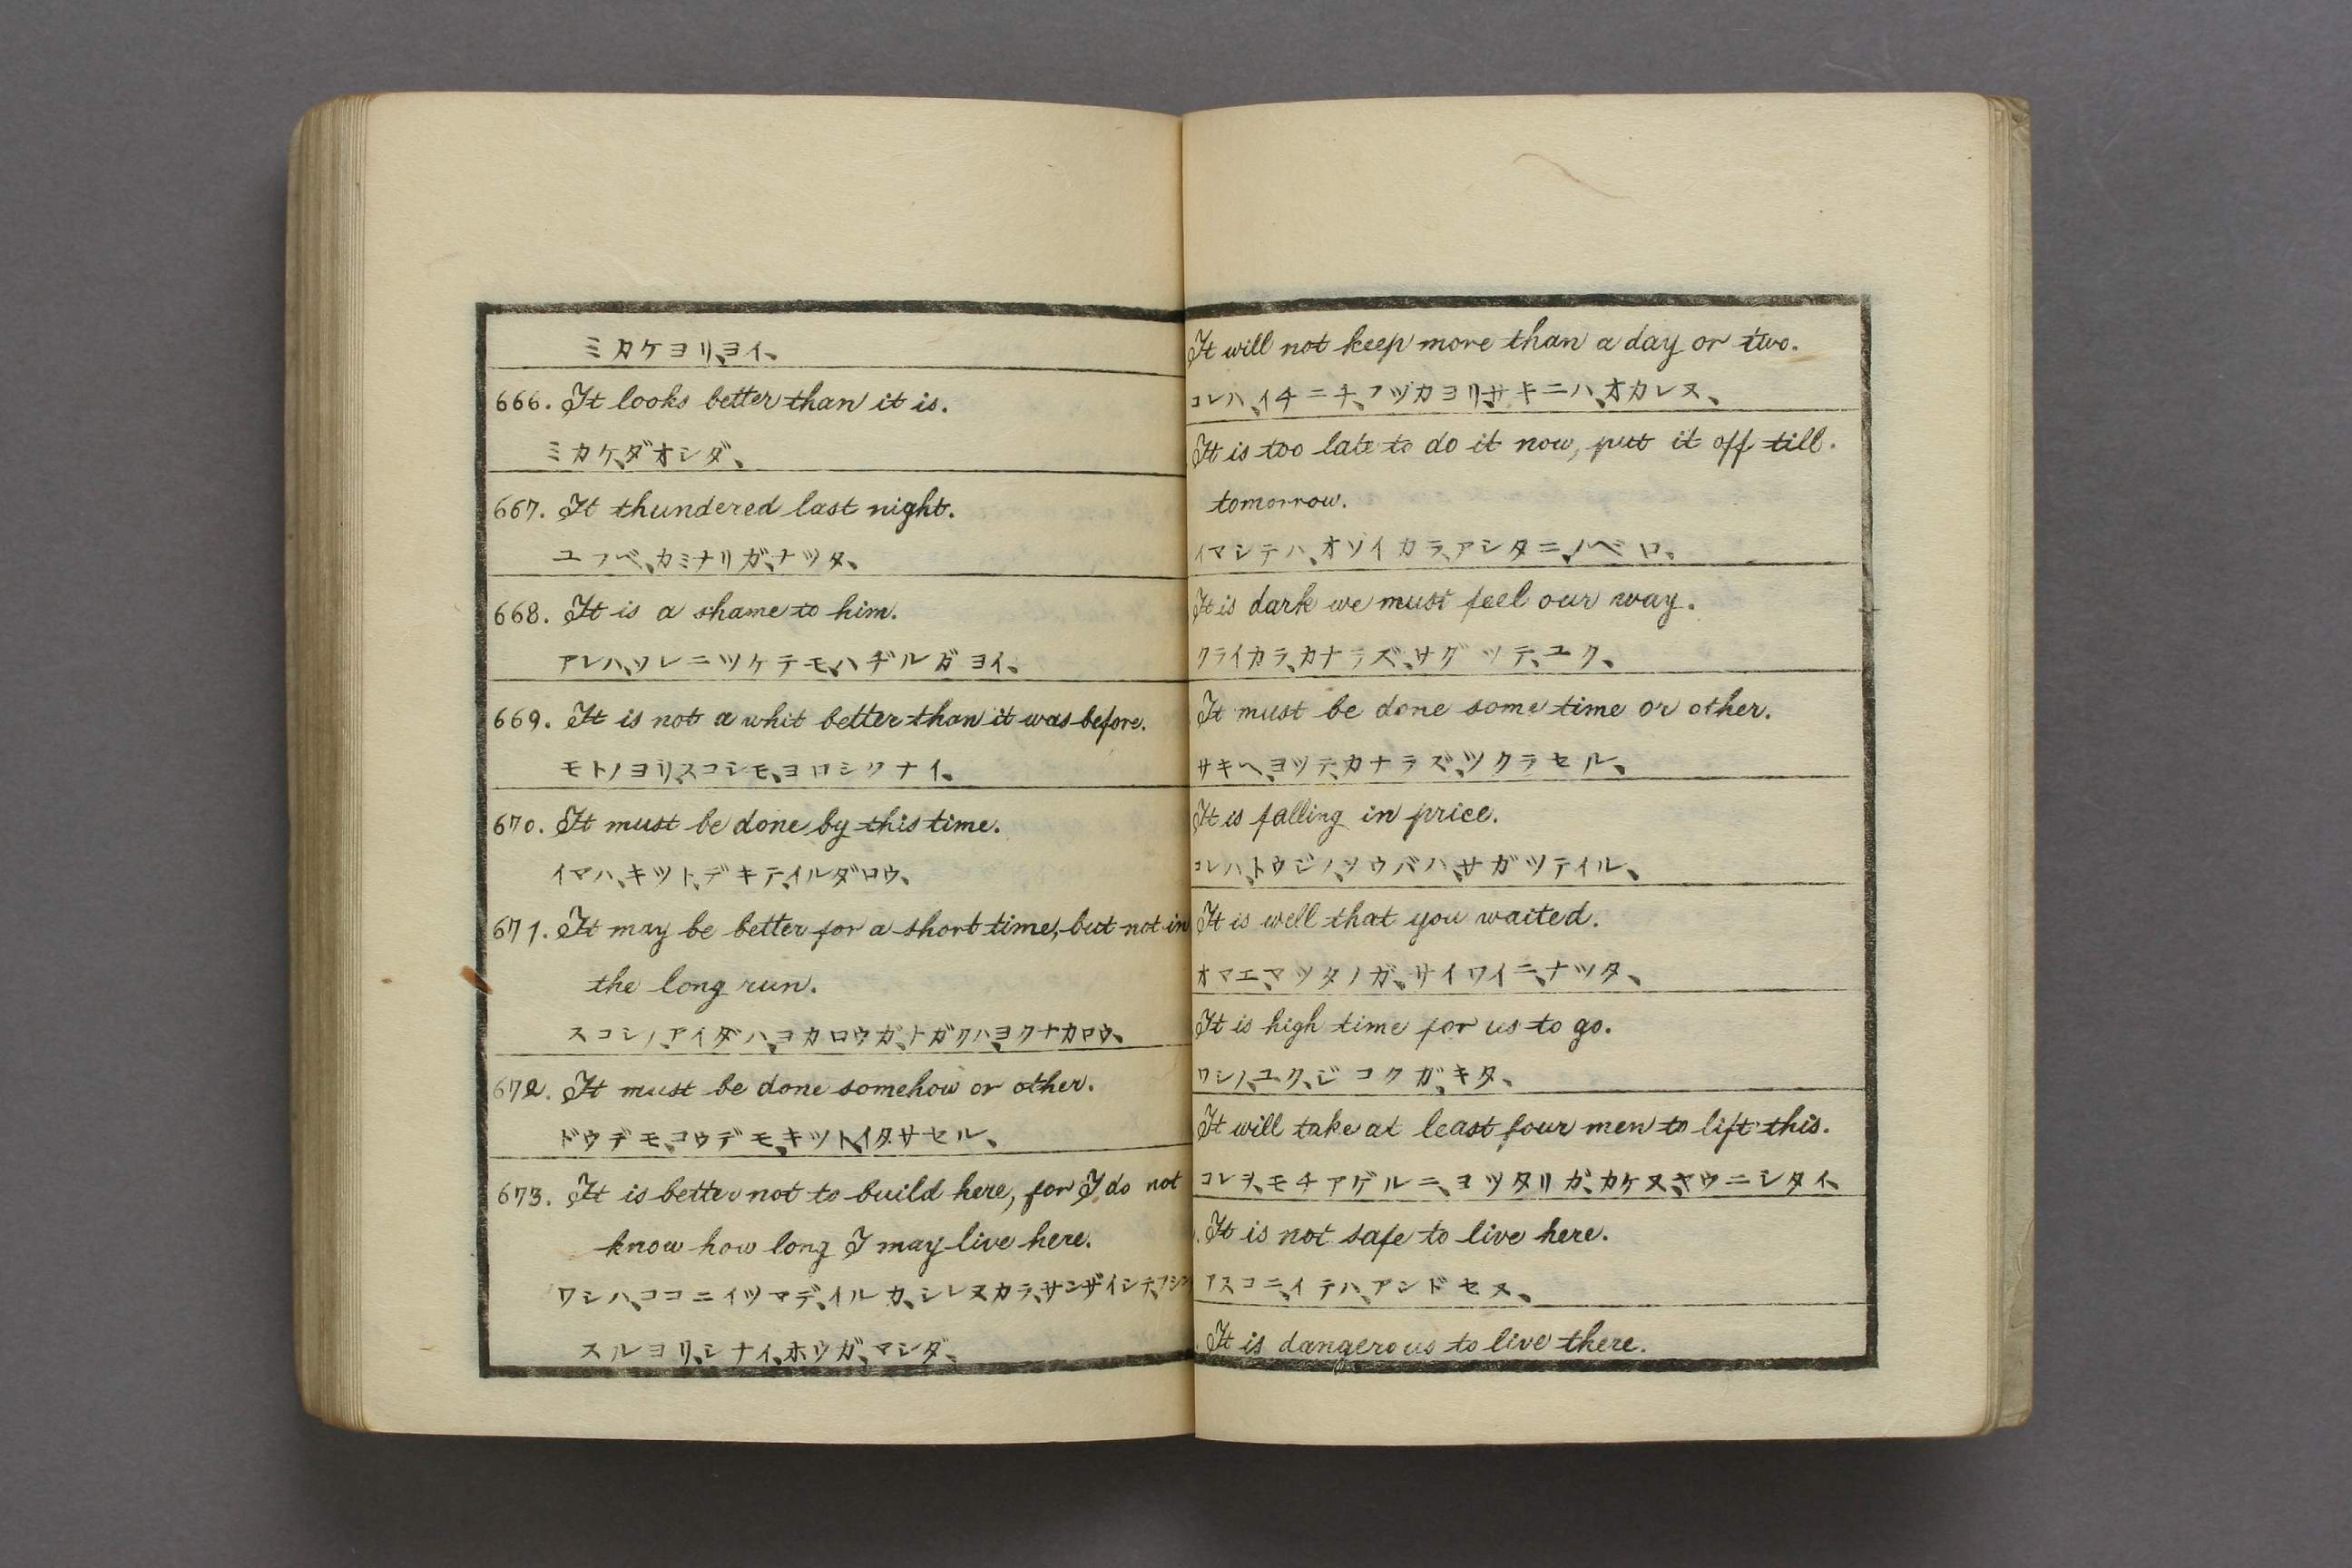 ミカケヨリ、ヨイ、
666. It looks better than it is.
ミカケ、ダオシダ、
667. It thundered last night.
ユフベ、カミナリガ、ナツタ、
668. It is a shame to him.
アレハ、ソレニツケテモ、ハヂルガヨイ、
669. It is not a whit better than it was before.
モトノヨリ、スコシモ、ヨロシクナイ、
670. It must be done by this time.
イマハ、キツト、デキテ、イルダロウ、
671. It may be better for a short time, but not in
the long run.
スコシノ、アイダハ、ヨカロウガ、ナガクハ、ヨクナカロウ、
672. It must be done somehow or other.
ドウデモ、コウデモ、キツト、イタサセル、
673. It is better not to build here, for I do not
know how long I may live here.
ワシハ、ココニイツマデ、イルカ、シレヌカラ、サンザイシテ、フシン
スルヨリ、シナイ、ホウガ、マシダ、
It will not keep more than a day or two.
コレハ、イチニチ、フツカヨリ、サキニハ、オカレヌ、
It is too late to do it now, put it off till.
tomorrow.
イマシテハ、オソイカラ、アシタニ、ノベロ、
It is dark we must feel our way.
クライカラ、カナラズ、サグツテ、ユク、
It must be done some time or other.
サキヘ、ヨツテ、カナラズ、ツクラセル、
It is falling in price.
コレハ、トウジノ、ソウバハ、サガツテイル、
It is well that you waited.
オマエ、マツタノガ、サイワイニ、ナツタ、
It is high time for us to go.
ワシノ、ユク、ジコクガ、キタ、
It will take at least four men to lift this.
コレヲ、モチアゲルニ、ヨツタリガ、カケヌ、ヤウニシタイ、
It is not safe to live here.
アスコニ、イテハ、アンドセヌ、
It is dangerous to live there.